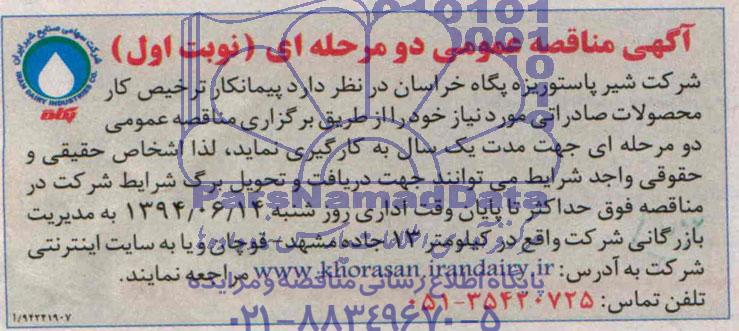 آگهی مناقصه عمومی دو مرحله ای (نوبت اول)
شرکت سهامی صنایع شیر ایران
IRAN DAIRY INDUSTRIES CO.
پگاه
شرکت شیر پاستوریزه پگاه خراسان در نظر دارد پیمانکار ترخیص کار
محصولات صادراتی مورد نیاز خود را از طریق برگزاری مناقصه عمومی
دو مرحله ای جهت مدت یک سال به کارگیری نماید، لذا اشخاص حقیقی و
حقوقی واجد شرایط می توانند جهت دریافت و تحویل برگ شرایط شرکت در
مناقصه فوق حداکثر تا پایان وقت اداری روز شنبه ۱۳۹۴/۰۶/۱۴ به مدیریت
بازرگانی شرکت واقع در کیلومتر ۱۳ جاده مشهد - قوچان و یا به سایت اینترنتی
شرکت به آدرس: www.khorasan.irandairy.ir مراجعه نمایند.
تلفن تماس: ۳۵۴۲۰۷۲۵-۰۵۱
۱/۹۴۲۴۱۹۰۷
ParsNamadData
پایگاه اطلاع رسانی مناقصه و مزایده
۰۲۱-۸۸۳۴۹۶۷۰-۵